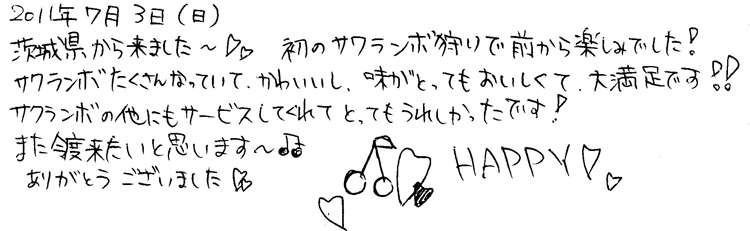 2011年7月3日(日)
茨城県から来ました〜♡♡ 初のサクランボ狩りで前から楽しみでした!
サクランボたくさんなっていて、かわいいし、味がとってもおいしくて、大満足です!!
サクランボの他にもサービスしてくれてとってもうれしかったです!
また今度来たいと思います〜♫
ありがとうございました♡
HAPPY♡♡